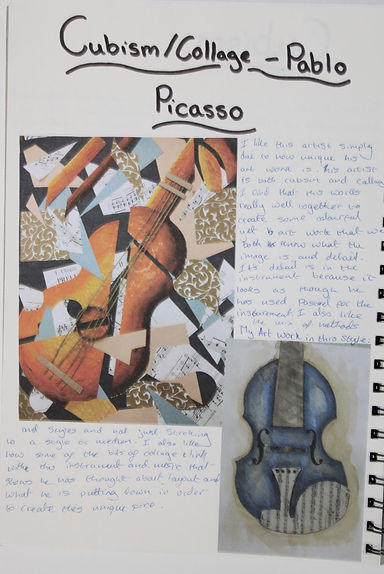 Cubism/Collage - Pablo
Picasso
I like this artist simply
due to how unique his
art work is. This artist
is both cubism and collage
I find that this works
really well together to
create some colourful
art work that
Both know what the
image is and detail.
Its detail is in the
instrument because it
looks as though he
has used Pastel for the
instrument. I also like
the mix of methods
My Art work in this Style:
and styles and not just sticking
to a single medium. I also like
how some of the bits of collage link
with this instrument and music that
shows he was thought about layout and
what he is putting down in order
to create this unique piece.